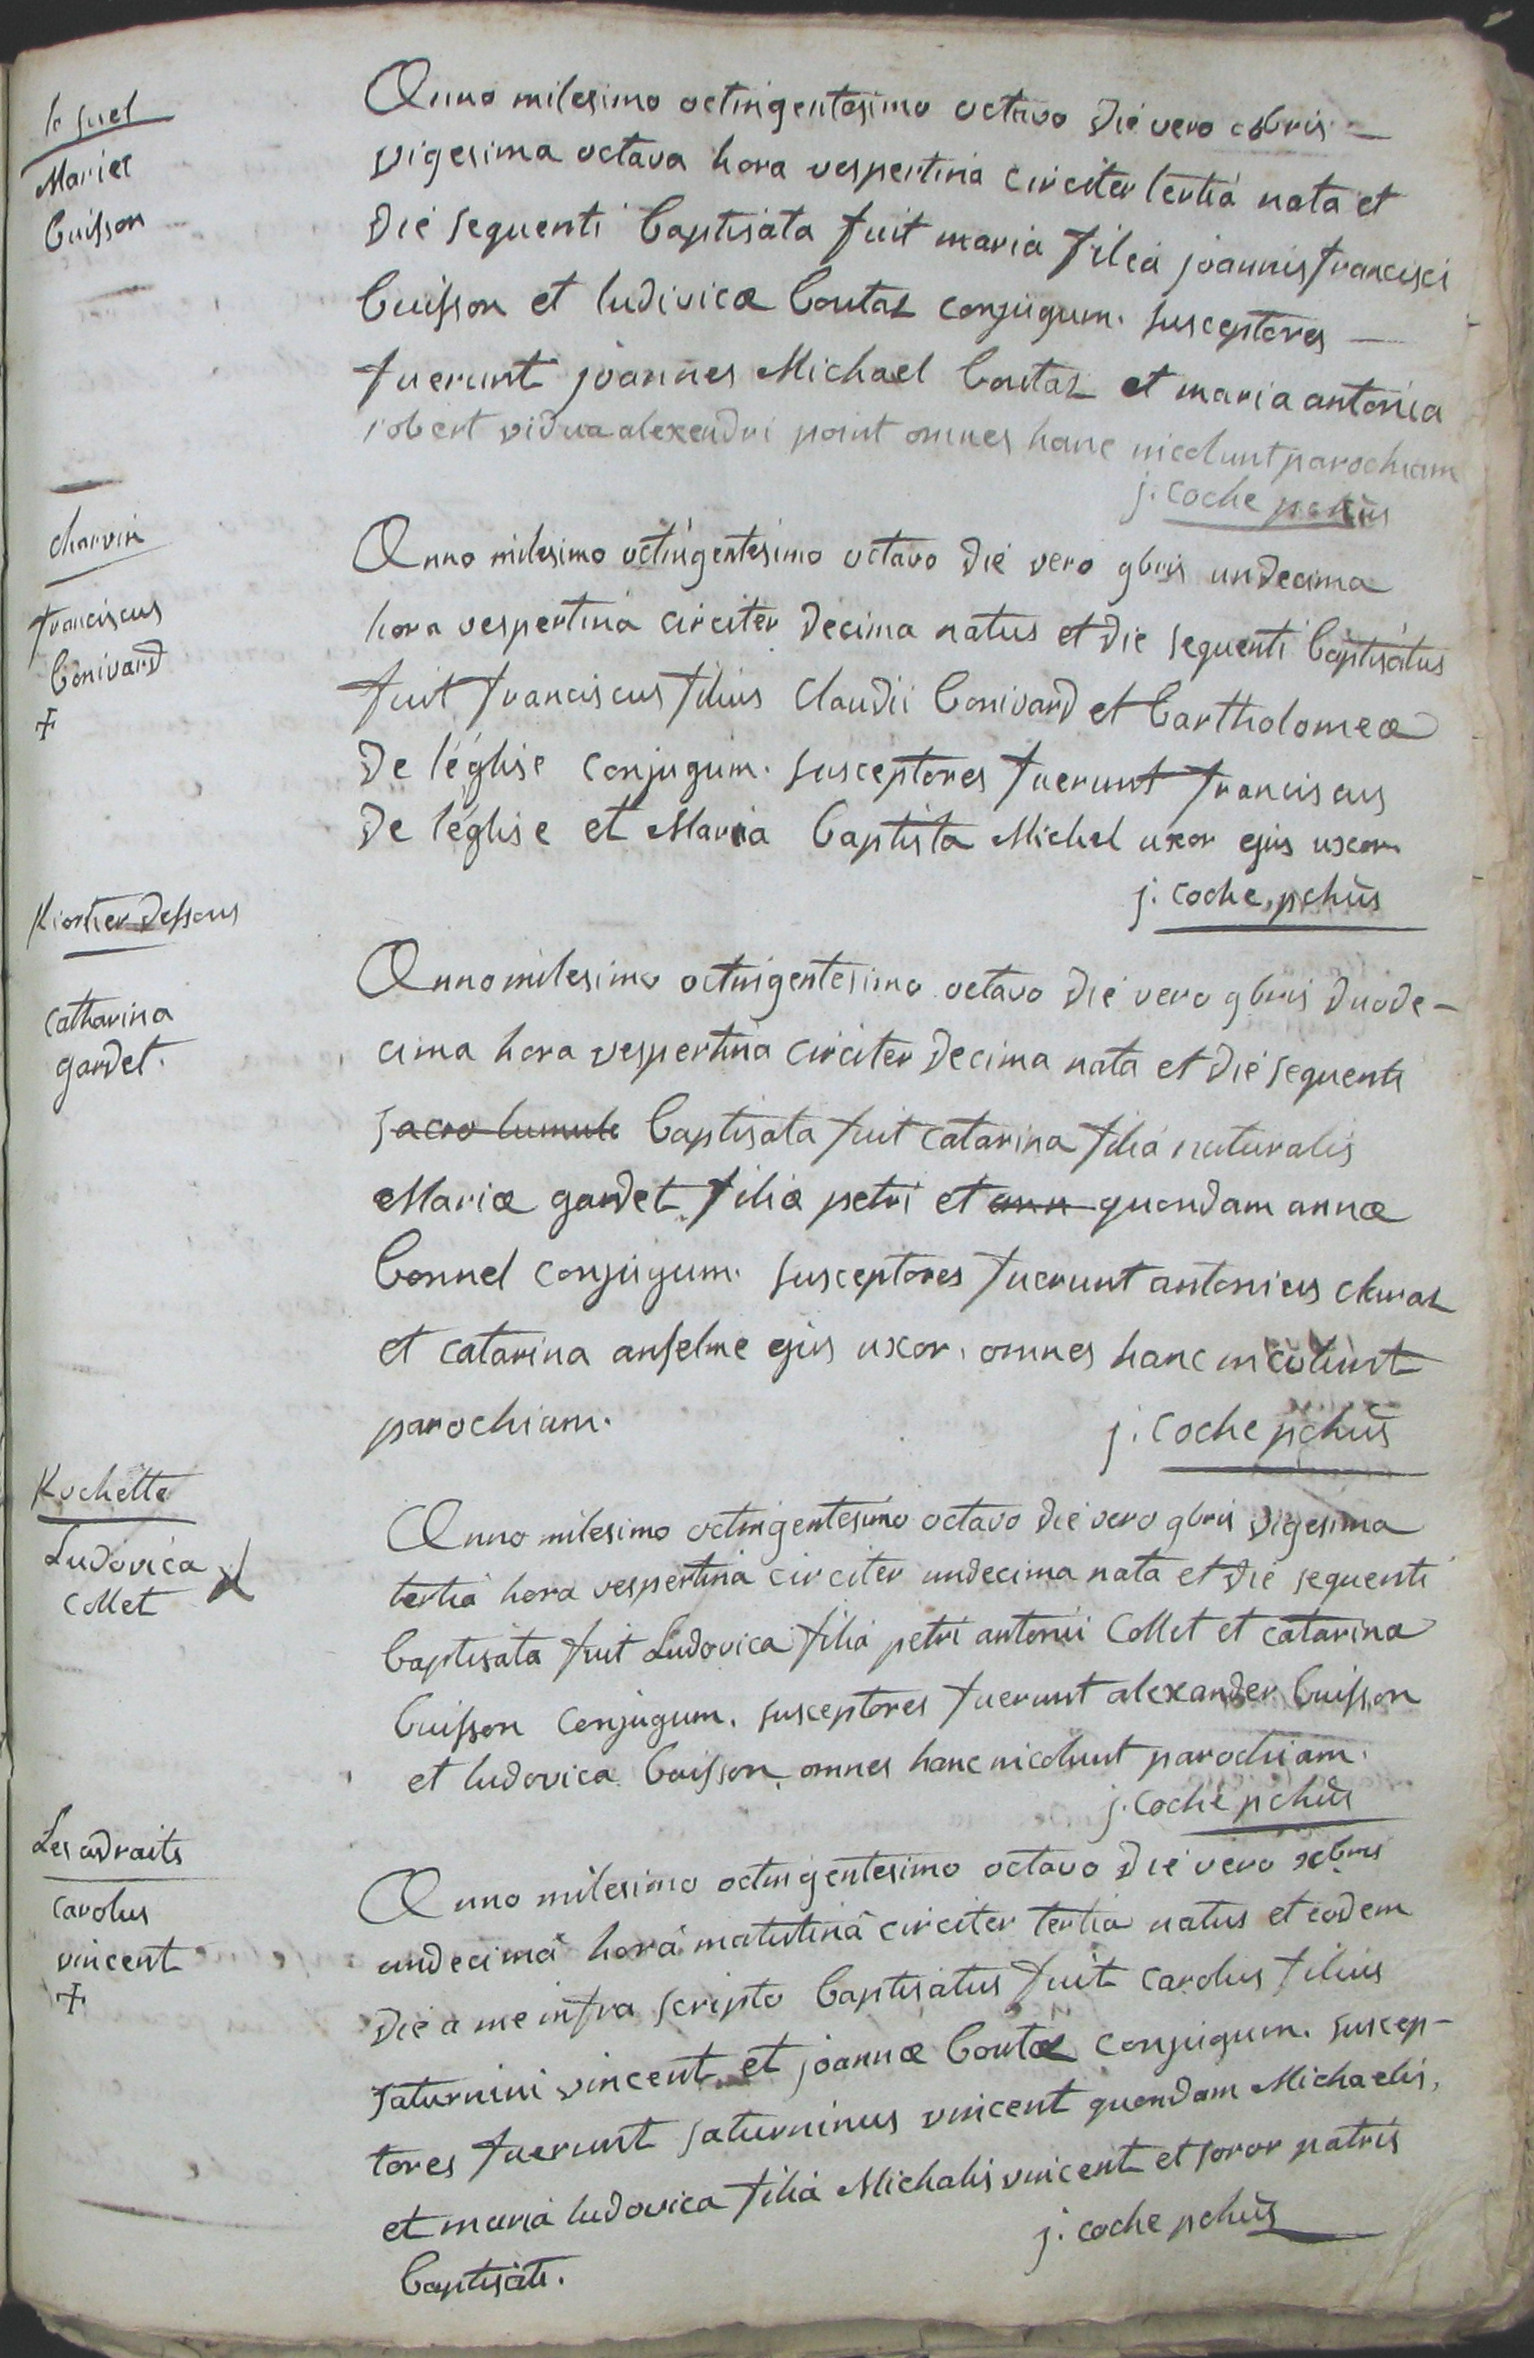 le suel
Mariee
buisson
Anno milesimo octingentesimo octavo die vero 8bris
vigesima octava hora vespertina circiter tertia nata et
die sequenti baptisata fuit maria filia joannis francisci
buisson et ludivicæ boutaz conjugum. susceptores
fuerunt joannes Michael boutaz et maria antonia
robert vidua alexendri point omnes hanc incolunt parochiam
j. coche pchus
charvin
franciscus
bonivard
Anno milesimo octingentesimo octavo die vero 9bris undecima
hora vespertina circiter decima natus et die sequenti baptisatus
fuit franciscus filius Claudii bonivard et bartholomeæ
De léglise conjugum. susceptores fuerunt franciscus
De léglise et Maria baptista Michel uxor ejus uxor.
j. coche, pchus
Kiortier dessous
catharina
gardet.
Anno milesimo octingentesimo octavo die vero 9bris duode-
cima hora vespertina circiter decima nata et die sequenti
sacro lumule baptisata fuit catarina filia naturalis
Mariæ gardet filiæ petri et ann quondam annæ
bonnel conjugum. susceptores fuerunt antonius cluraz
et catarina anselme ejus uxor, omnes hanc incolunt
parochiam.
j. coche pchus
Rochette
Ludovica
collet
Anno milesimo octingentesimo octavo die vero 9bris vigesima
tertia hora vespertina circiter undecima nata et die sequenti
baptisata fuit Ludovica filia petri antonii Collet et catarina
buisson conjugum. susceptores fuerunt alexander buisson
et ludovica buisson, omnes hanc incolunt parochiam.
j. coche pchus
Les adraits
carolus
vincent
Anno milesimo octingentesimo octavo die vero xbris
undecimâ horâ matutinâ circiter tertia natus et eodem
die a me infra scripto baptisatus fuit carolus filius
saturnini vincent et joannæ boutaz conjugum. suscep-
tores fuerunt saturninus vincent quondam Michaelis,
et maria ludovica filia Michalis vincent et soror patris
j. coche pchus
baptisati.